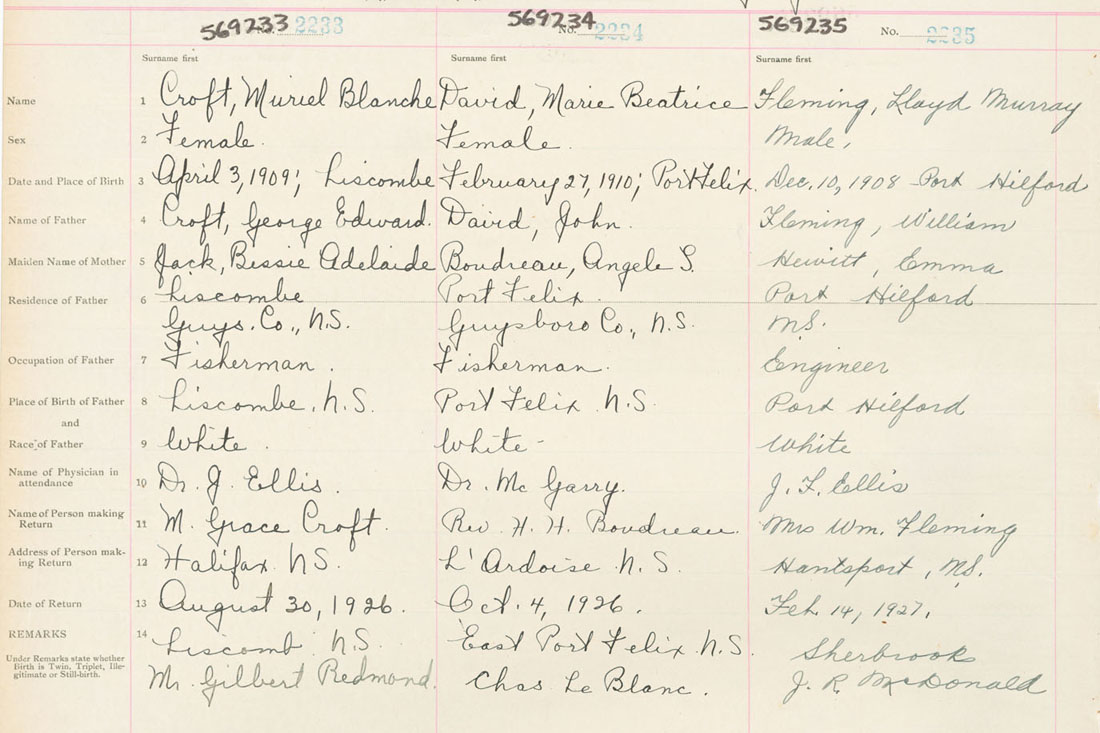 569233 No. 2233 569234 No. 2234 569235 No. 2235
Surname first Surname first Surname first
Name 1 Croft, Muriel Blanche David, Marie Beatrice Fleming, Lloyd Murray
Sex 2 Female. Female. Male,
Date and Place of Birth 3 April 3, 1909; Liscombe February 27, 1910; Port Felix. Dec. 10, 1908 Port Hilford
Name of Father 4 Croft, George Edward. David, John. Fleming, William
Maiden Name of Mother 5 Jack, Bessie Adelaide Boudreau, Angele S. Hewitt, Emma
Residence of Father 6 Liscombe Port Felix. Port Hilford
Guys. Co., N.S. Guysboro Co., N.S. N.S.
Occupation of Father 7 Fisherman. Fisherman. Engineer
Place of Birth of Father 8 Liscombe, N.S. Port Felix N.S. Port Hilford
and
Race of Father 9 White. White - White
Name of Physician in
attendance 10 Dr. J. Ellis. Dr. Mc Garry. J. F. Ellis
Name of Person making
Return 11 M. Grace Croft. Rev H. H. Boudreau. Mrs Wm. Fleming
Address of Person mak-
ing Return 12 Halifax NS. L'Ardoise N.S. Hantsport, N.S.
Date of Return 13 August 30, 1926. Oct. 4, 1926. Feb. 14, 1927.
REMARKS 14 Liscomb N.S. East Port Felix N.S. Sherbrook
Under Remarks state whether
Birth is Twin, Triplet, Ille-
gitimate or Still-birth. Mr Gilbert Redmond. Chas Le Blanc. J. R. McDonald